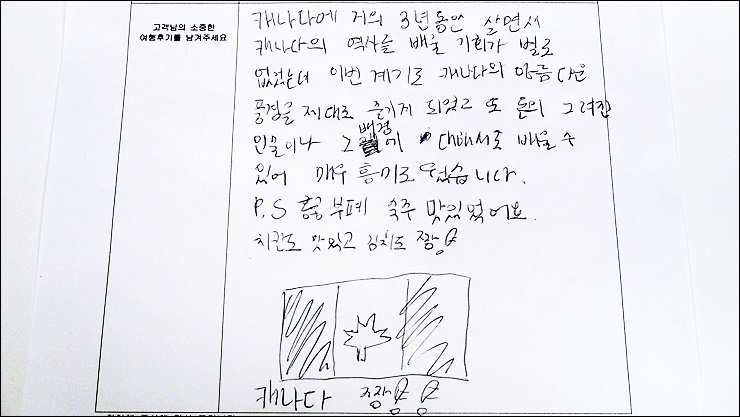 고객님의 소중한
여행후기를 남겨주세요
캐나다에 거의 3년동안 살면서
캐나다의 역사를 배울 기회가 별로
없었는데 이번 계기로 캐나다의 아름다운
풍경을 제대로 즐기게 되었고 또 돈의 그려진
인물이나 그 배경에 대해서도 배울 수
있어 매우 흥미로웠습니다.
P.S 홍콩 부페 맛있었어요.
치킨도 맛있고 김치도 짱
캐나다 짱